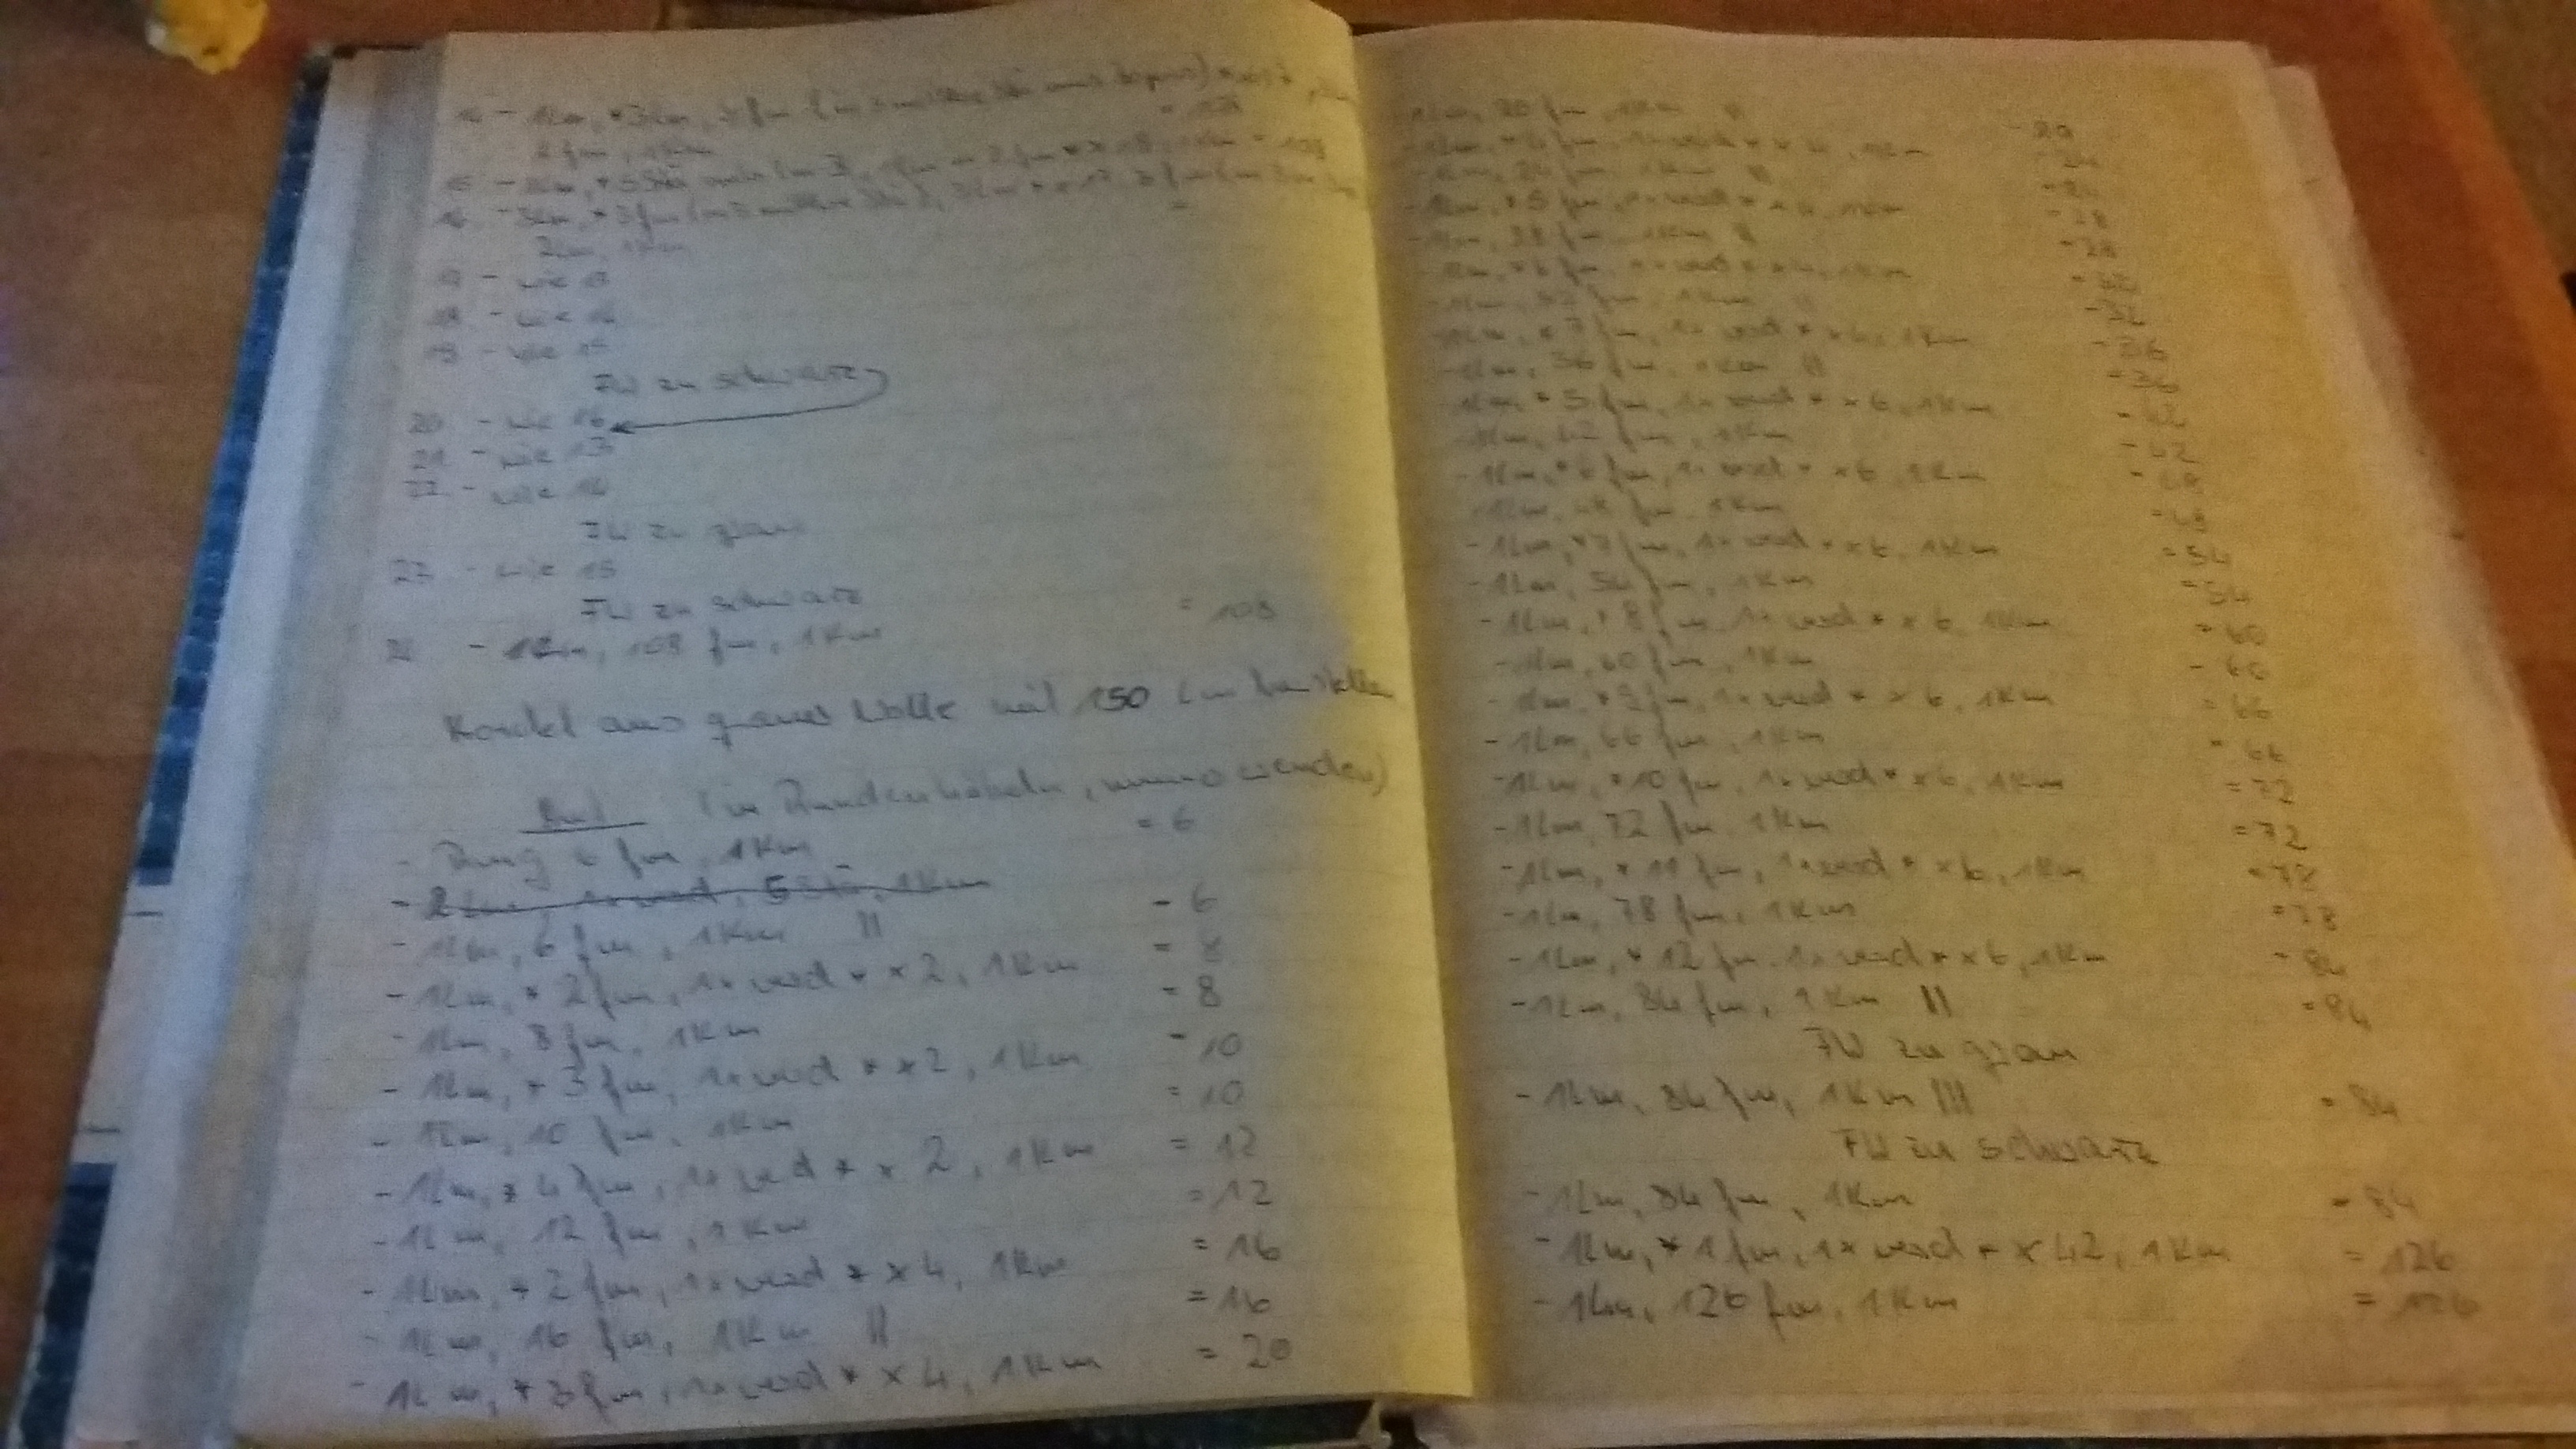 2 fm, 1Km
17 - wie 13
18 - wie 14
19 - wie 15
FW zu schwarz
20 - wie 16
21 - wie 13
22 - wie 14
FW zu grau
23 - wie 15
FW zu schwarz
- 1Lm, 108 fm, 1Km = 108
Kordel aus grauer Wolle mit 150 Lm herstellen
(in Runden häkeln, wenden)
- Ring 6 fm, 1Km = 6
- 1Lm, 6 fm, 1Km || = 6
- 1Lm, * 2 fm, 1x verd * x 2, 1Km = 8
- 1Lm, 8 fm, 1Km = 8
- 1Lm, * 3 fm, 1x verd * x 2, 1Km = 10
- 1Lm, 10 fm, 1Km = 10
- 1Lm, * 4 fm, 1x verd * x 2, 1Km = 12
- 1Lm, 12 fm, 1Km = 12
- 1Lm, * 2 fm, 1x verd * x 4, 1Km = 16
- 1Lm, 16 fm, 1Km || = 16
- 1Lm, * 3 fm, 1x verd * x 4, 1Km = 20
- 1Lm, 20 fm, 1Km || = 20
- 1Lm, * 4 fm, 1x verd * x 4, 1Km = 24
- 1Lm, 24 fm, 1Km || = 24
- 1Lm, * 5 fm, 1x verd * x 4, 1Km = 28
- 1Lm, 28 fm, 1Km || = 28
- 1Lm, * 6 fm, 1x verd * x 4, 1Km = 32
- 1Lm, 32 fm, 1Km || = 32
- 1Lm, * 7 fm, 1x verd * x 4, 1Km = 36
- 1Lm, 36 fm, 1Km || = 36
- 1Lm, * 5 fm, 1x verd * x 6, 1Km = 42
- 1Lm, 42 fm, 1Km = 42
- 1Lm, * 6 fm, 1x verd * x 6, 1Km = 48
- 1Lm, 48 fm, 1Km = 48
- 1Lm, * 7 fm, 1x verd * x 6, 1Km = 54
- 1Lm, 54 fm, 1Km = 54
- 1Lm, * 8 fm, 1x verd * x 6, 1Km = 60
- 1Lm, 60 fm, 1Km = 60
- 1Lm, * 9 fm, 1x verd * x 6, 1Km = 66
- 1Lm, 66 fm, 1Km = 66
- 1Lm, * 10 fm, 1x verd * x 6, 1Km = 72
- 1Lm, 72 fm, 1Km = 72
- 1Lm, * 11 fm, 1x verd * x 6, 1Km = 78
- 1Lm, 78 fm, 1Km = 78
- 1Lm, * 12 fm, 1x verd * x 6, 1Km = 84
- 1Lm, 84 fm, 1Km || = 84
FW zu grau
- 1Lm, 84 fm, 1Km ||| = 84
FW zu schwarz
- 1Lm, 84 fm, 1Km = 84
- 1Lm, * 1 fm, 1x verd * x 42, 1Km = 126
- 1Lm, 126 fm, 1Km = 126